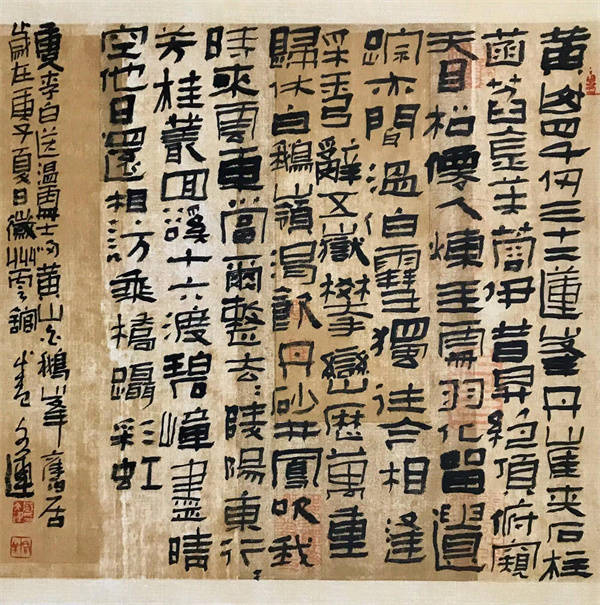 黄山四千仞三十二蓮峯丹崖夾石柱
菡萏金芙蓉伊昔昇絶頂俯窺
天目松僊人煉玉處羽化留遺
踪亦聞溫伯雪獨往今相逢
采秀辭五嶽攀巒歷萬重
歸休白鵝嶺渴飲丹砂井鳳吹我
時來雲車當爾整去〻陵陽東行〻
芳桂叢回溪十六渡碧嶂盡晴
空他日還相訪乘橋躡彩虹
李白送溫處士歸黄山白鵝峯舊居
歲在庚子夏日徽州雲